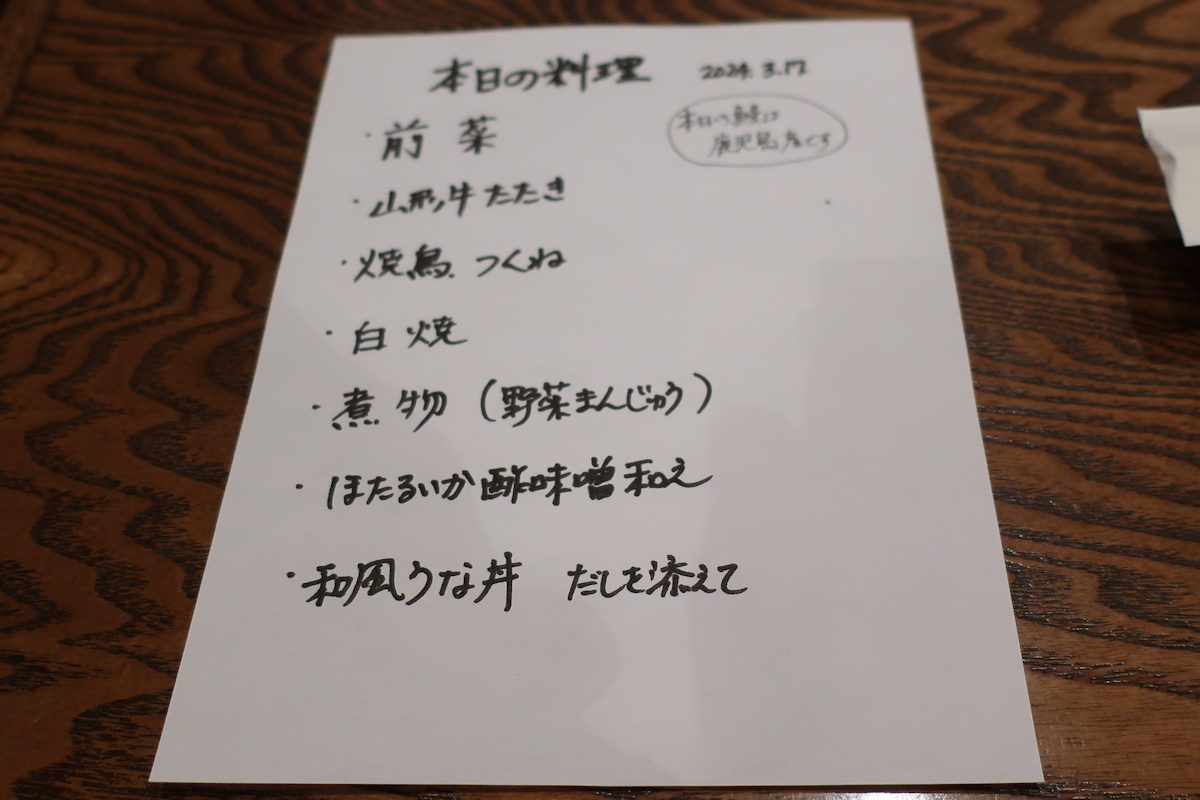 本日の料理 2024.3.17
本日の鰻は
鹿児島産です
・前菜
・山形牛たたき
・焼鳥 つくね
・白焼
・煮物（野菜まんじゅう）
・ほたるいか酢味噌和え
・和風うな丼 だしを添えて